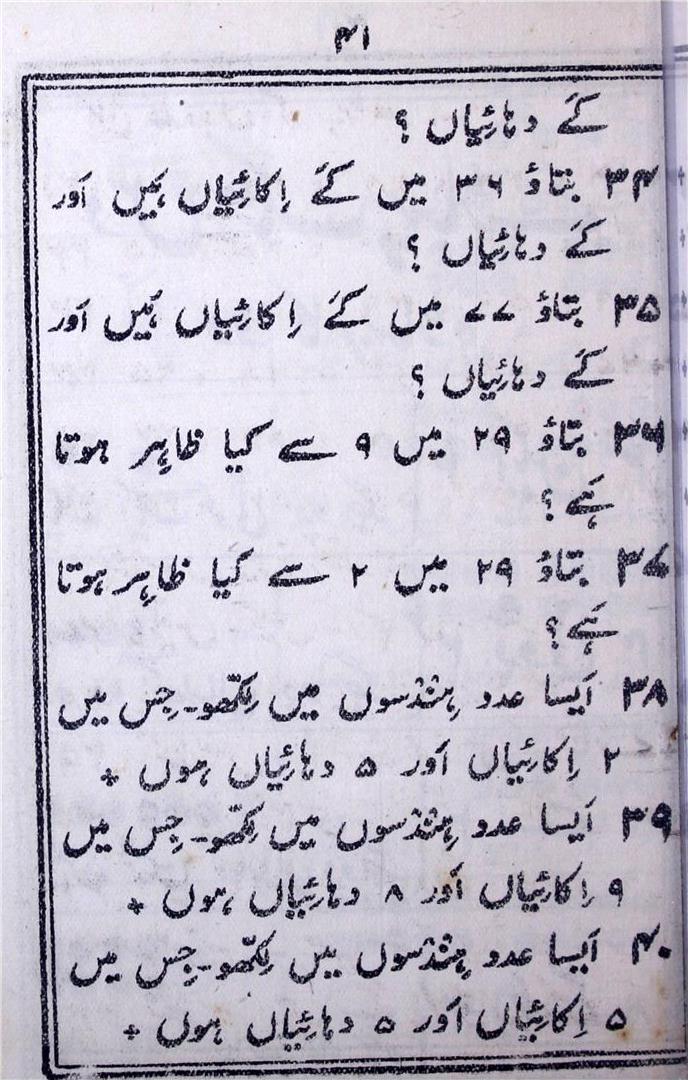 ۴۱
کَے دہائِیاں ؟
۳۴ بتاؤ ۳۶ میں کَے اِکائِیاں ہَیں اَور
کَے دہائِیاں ؟
۳۵ بتاؤ ۷۷ میں کَے اِکائِیاں ہَیں اَور
کَے دہائِیاں ؟
۳۶ بتاؤ ۲۹ میں ۹ سے کیا ظاہِر ہوتا
ہَے ؟
۳۷ بتاؤ ۲۹ میں ۲ سے کیا ظاہِر ہوتا
ہَے ؟
۳۸ اَیسا عدد ہِندسوں میں لِکھو۔ جِس میں
۲ اِکائِیاں اَور ۵ دہائِیاں ہوں +
۳۹ اَیسا عدد ہِندسوں میں لِکھو۔ جِس میں
۹ اِکائِیاں اَور ۸ دہائِیاں ہوں +
۴۰ اَیسا عدد ہِندسوں میں لِکھو۔ جِس میں
۵ اِکائِیاں اَور ۵ دہائِیاں ہوں +